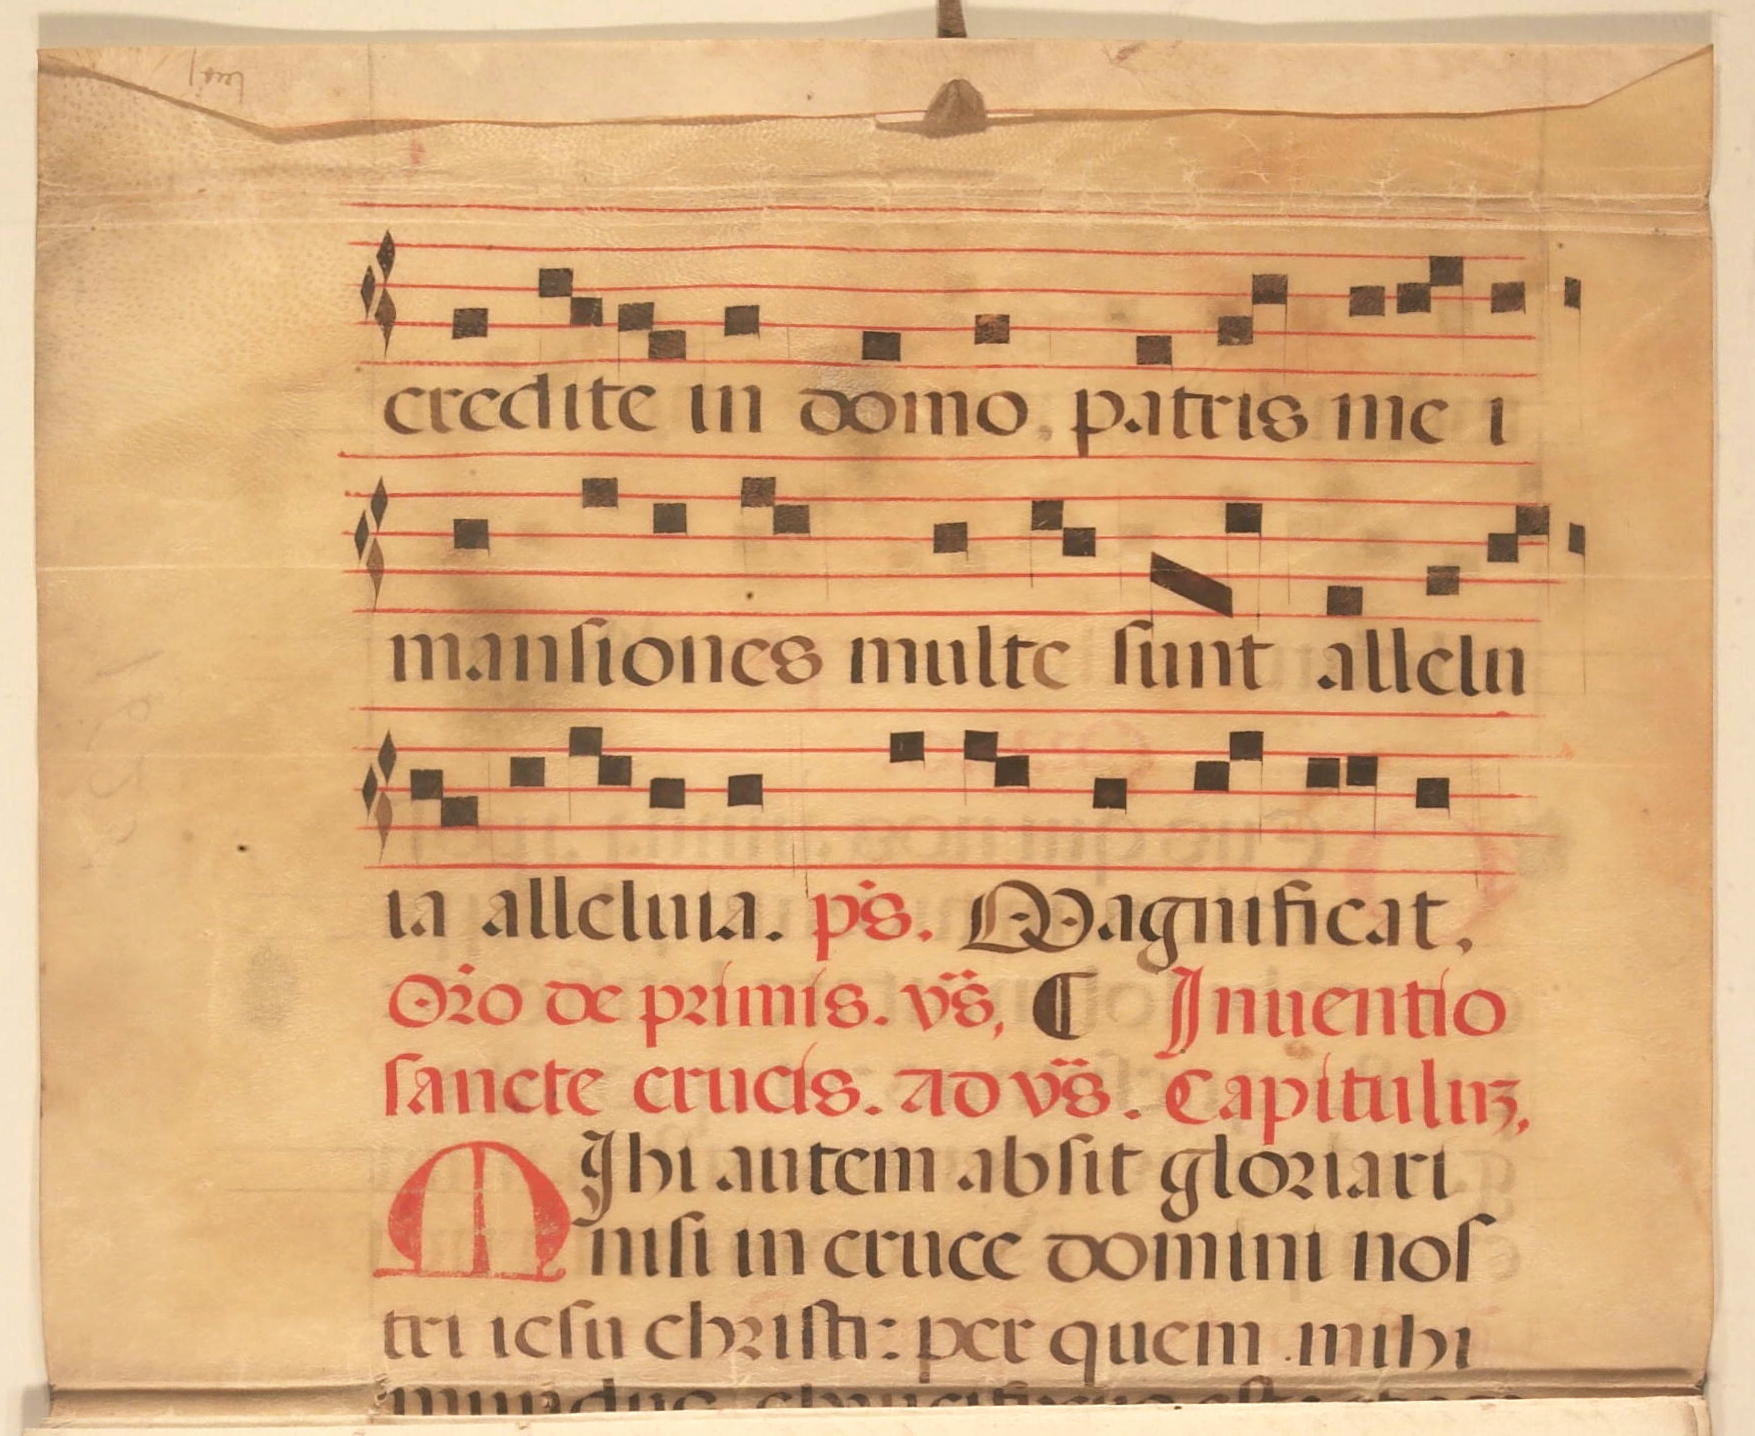 credite in domo, patris me i
mansiones multe sunt allelu
ia alleluia. ps. Magnificat,
Oro de primis. vs, ¶ Inuentio
sancte crucis. Ad vs. Capituluz,
MIhi autem absit gloriari
nisi in cruce domini nos
tri iesu christi: per quem mihi
mundus